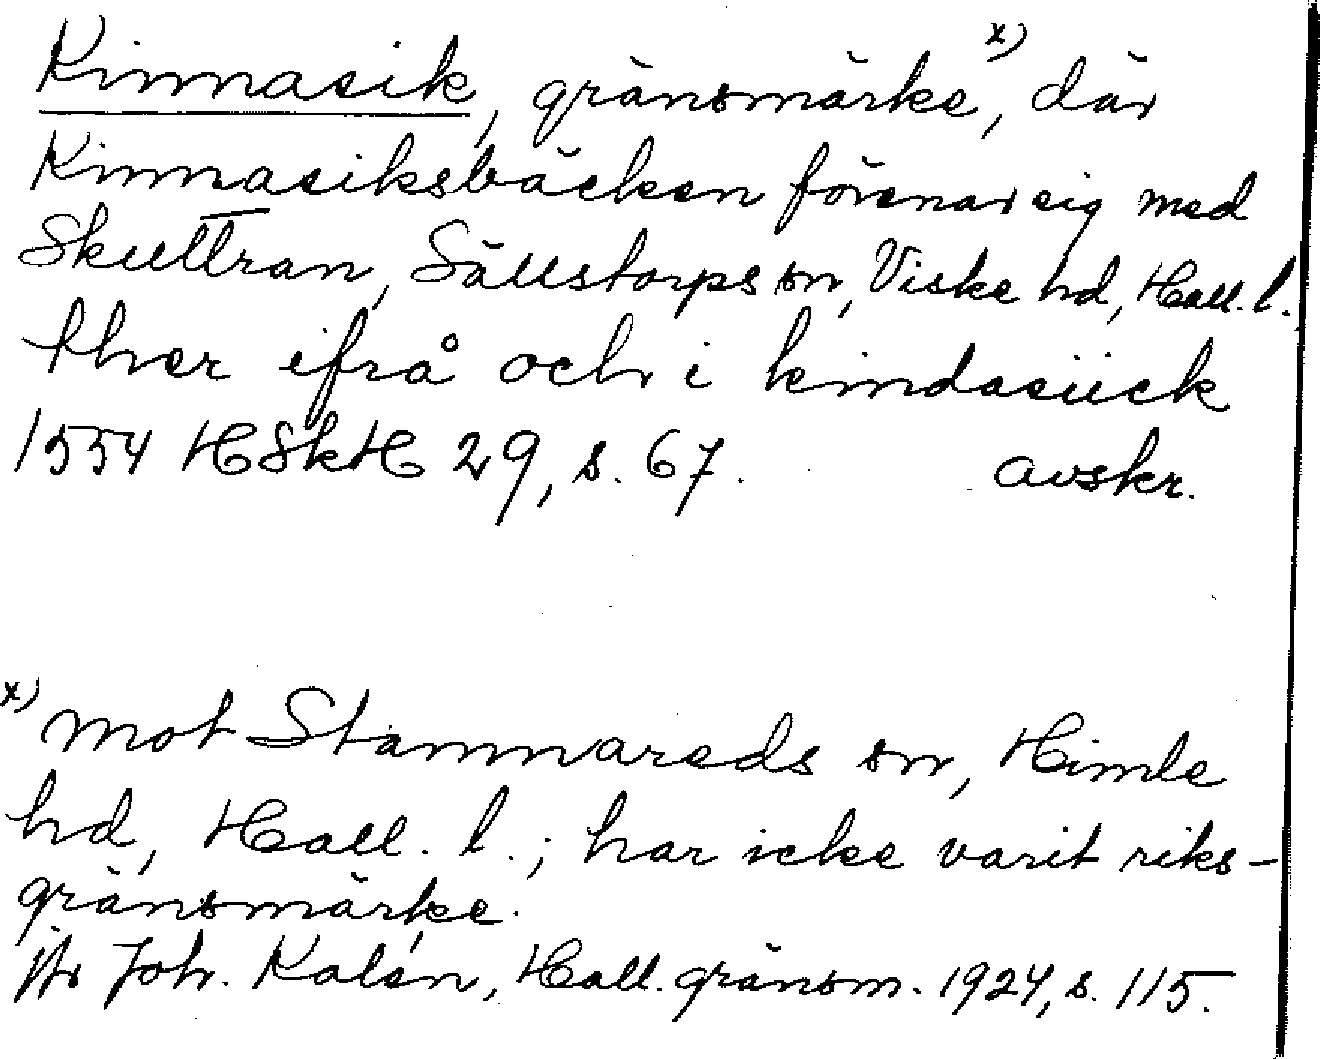 Kinnasik, gränsmärke,x) där
Kinnasiksbäcken förenar sig med
Skuttran, Sällstorps sn, Viske hd, Hall. l.
ther ifrå och i kindasiick
1554 HSkH 29, s. 67. avskr.
x) mot Stamnareds sn, Himle
hd, Hall. l.; har icke varit riks-
gränsmärke.
jfr Joh. Kalén, Hall. gränsm. 1924, s. 115.